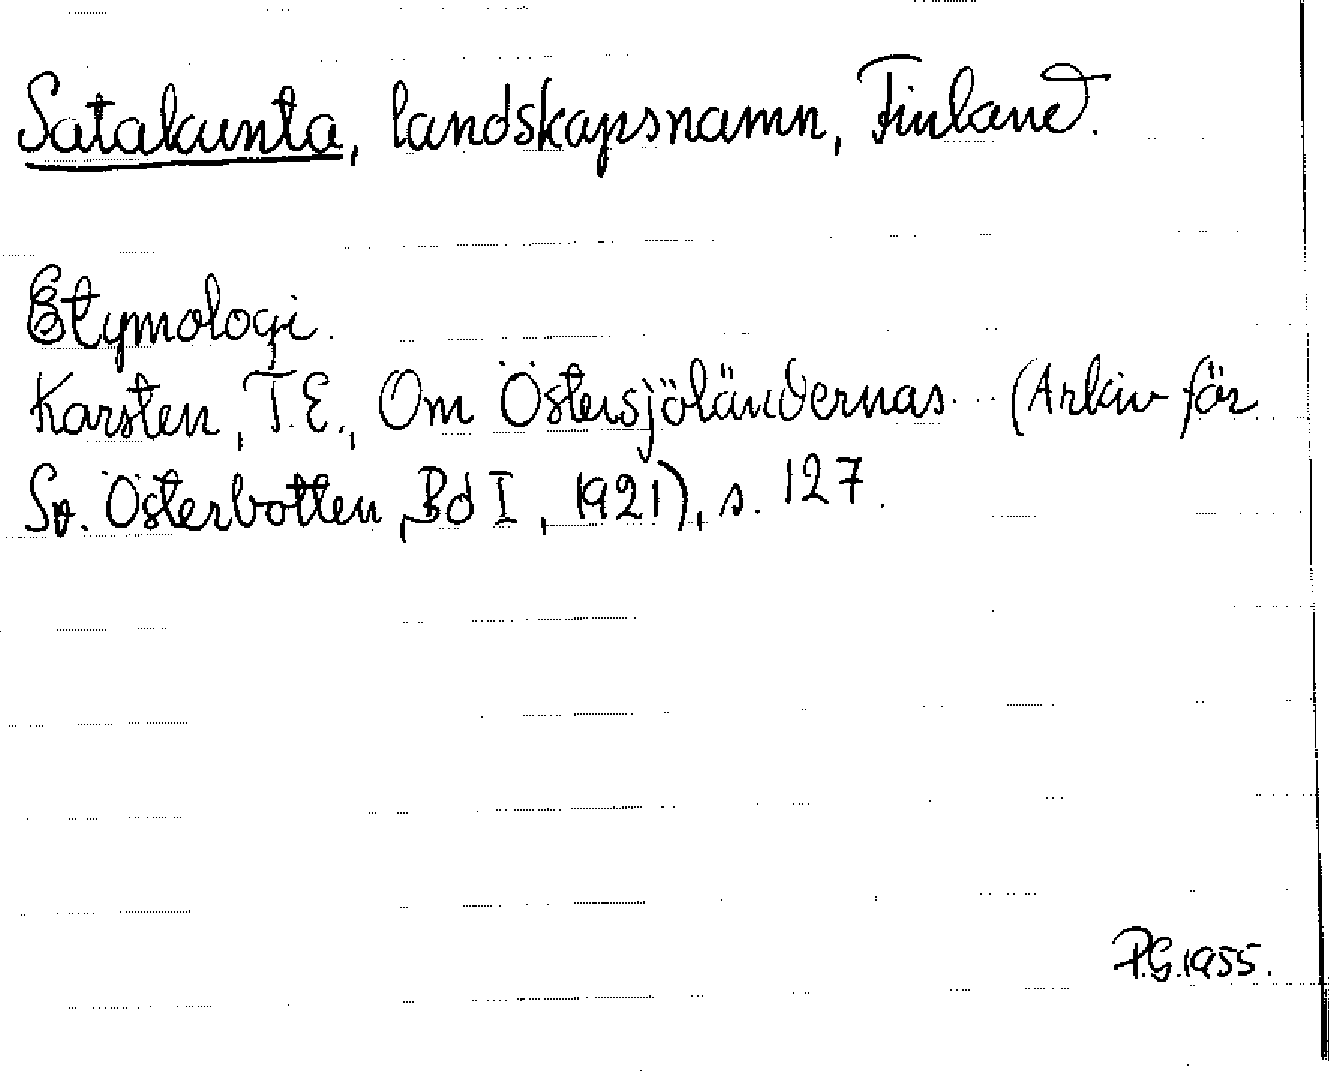 Satakunta, landskapsnamn, Finland.
Etymologi.
Karsten, T.E., Om Östersjöländernas... (Arkiv för
Sv. Österbotten, Bd I, 1921), s. 127.
P.G.1955.